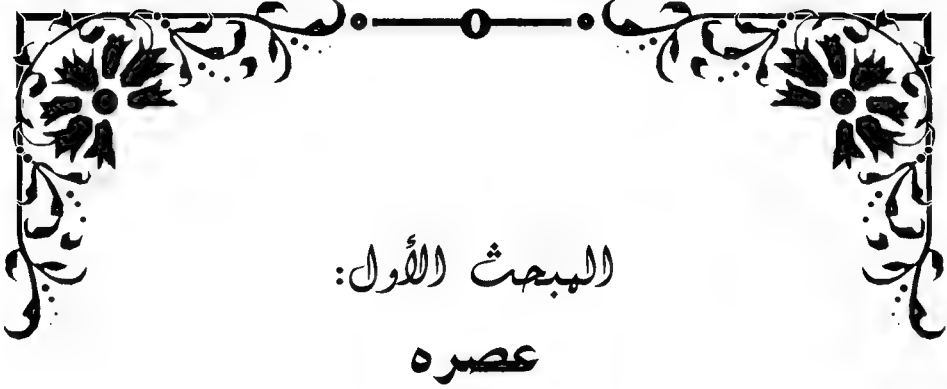 المبحث الأول:
عصره